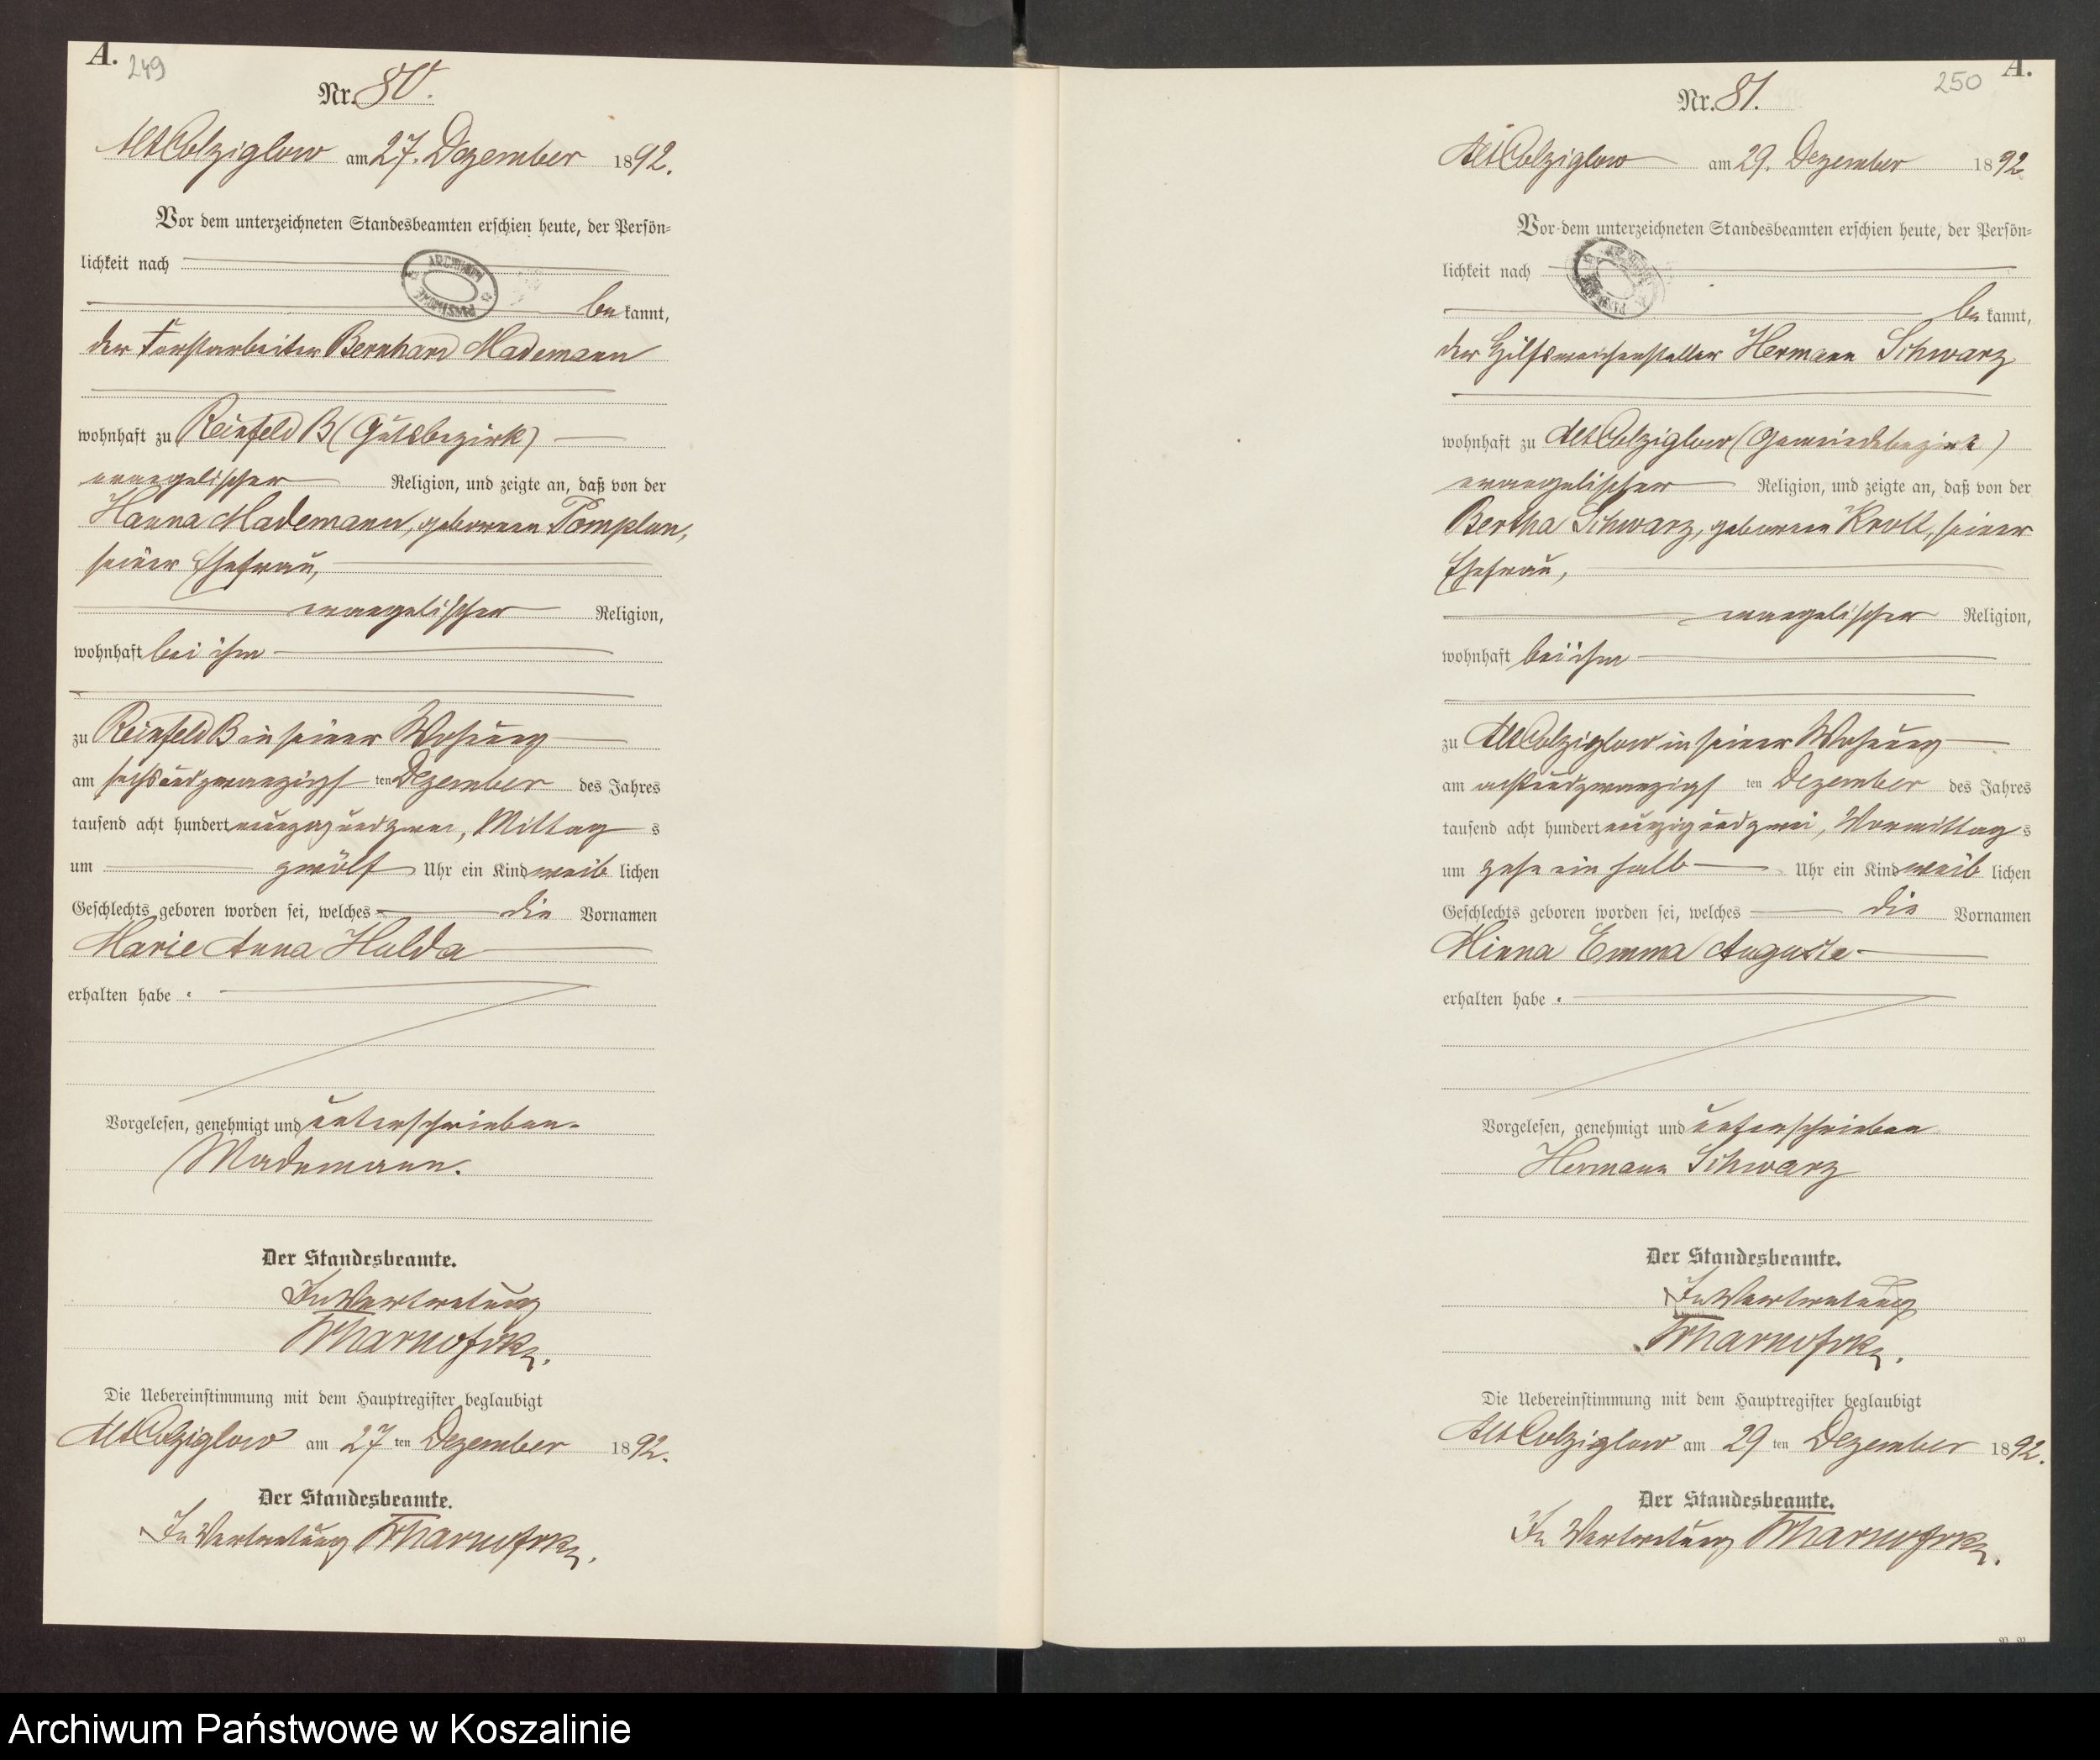 A.
249
Nr. 80.
Alt Colziglow am 27. Dezember 1892.
Vor dem unterzeichneten Standesbeamten erschien heute, der Persön-
lichkeit nach
be kannt,
der Forstarbeiter Bernhard Mademann
wohnhaft zu Reinfeld B (Gutsbezirk)
evangelischer Religion, und zeigte an, daß von der
Hanna Mademann, geborenen Pomplun,
seiner Ehefrau,
evangelischer Religion,
wohnhaft bei ihm
zu Reinfeld B in seiner Wohung
am sechsundzwanzigs ten Dezember des Jahres
tausend acht hundert neunzig und zwei, Mittag s
um zwölf Uhr ein Kind weib lichen
Geschlechts geboren worden sei, welches die Vornamen
Marie Anna Hulda
erhalten habe.
Vorgelesen, genehmigt und unterschrieben.
Mademann.
Der Standesbeamte.
In Vertretung
Die Uebereinstimmung mit dem Hauptregister beglaubigt
Alt Colziglow am 27 ten Dezember 1892.
Der Standesbeamte.
In Vertretung
A.
250
Nr. 81.
Alt Colziglow am 29. Dezember 1892
Vor dem unterzeichneten Standesbeamten erschien heute, der Persön-
lichkeit nach
be kannt,
der Hilfsweichensteller Hermann Schwarz
wohnhaft zu Alt Colziglow (Gemeindebezirk)
evangelischer Religion, und zeigte an, daß von der
Bertha Schwarz, geborenen Kroll, seiner
Ehefrau,
evangelischer Religion,
wohnhaft bei ihm
zu Alt Colziglow in seiner Wohung
am achtundzwanzigs ten Dezember des Jahres
tausend acht hundert neunzig und zwei, Vormittag s
um zehn ein halb Uhr ein Kind weib lichen
Geschlechts geboren worden sei, welches die Vornamen
Minna Emma Auguste
erhalten habe.
Vorgelesen, genehmigt und unterschrieben
Hermann Schwarz
Der Standesbeamte.
In Vertretung
Die Uebereinstimmung mit dem Hauptregister beglaubigt
Alt Colziglow am 29 ten Dezember 1892.
Der Standesbeamte.
In Vertretung
Archiwum Państwowe w Koszalinie